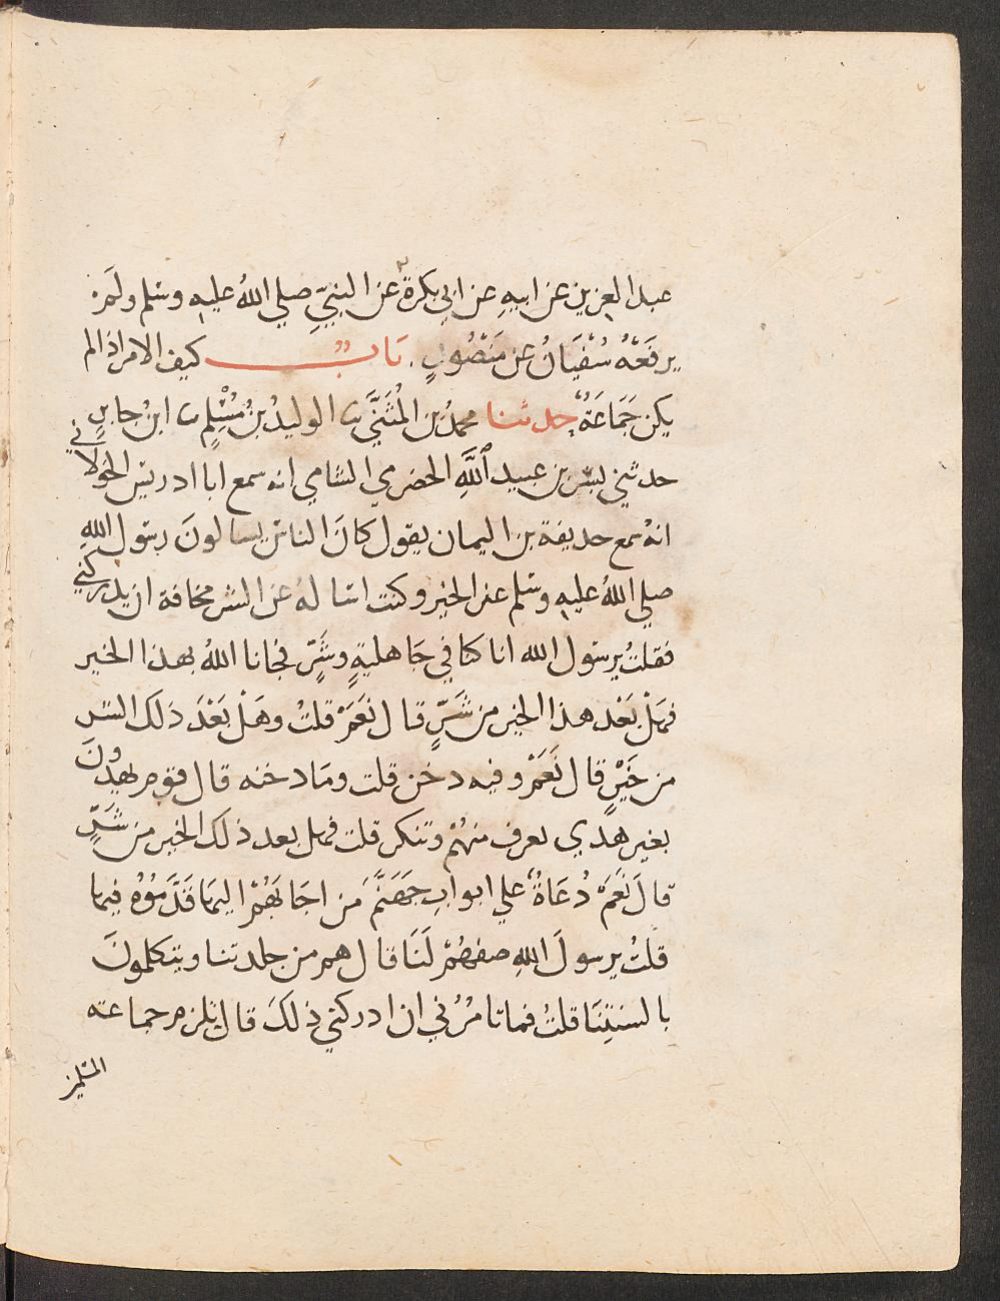 عبد العزيز عن ابيه عن ابي بكرة عن النبيِّ صلي اللهُ عليه وسلم ولَمْ
يرفَعْهُ سُفْيَانُ عن مَنْصُورٍ . بَابٌ كيف الامر اذا لم
يكن جَمَاعَةٌ حدثنا محمدُ بن المُثَنَّي ثنا الوليدُ بنُ مُسْلِمٍ ثنا ابنُ جابرٍ
حدثني بسْر بن عبيد ٱللَّهِ الحضرمي الشامي انه سمع ابا ادريس الخولاني
انهُ سمع حذيفة بن اليمان يقول كانَ الناسُ يسالونَ رسول اللهِ
صلي اللهُ عليه وسلم عن الخير وكنت اسالهُ عن الشر مخافة ان يدركني
فقلتُ يرسول الله انا كنا في جَاهليةٍ وشَرٍّ فجانا اللهُ بهذا الخير
فهَلْ بَعْد هذا الخير من شَرٍّ قال نَعَمْ قلتُ وهَلْ بَعْدَ ذلك الشر
من خَيْرٍ قال نَعَمْ وفيه دخن قلت ومَا دخنه قال قوم يهدُونَ
بغير هَدي تعرف منهُمْ وتنكر قلت فهل بعد ذلك الخير من شَرٍّ
قالَ نَعَمْ دُعَاةٌ علي ابوابِ جَهَنَّمَ مَن اجَابَهُمْ اليهَا قَذَّمُوْهُ فيها
قلتُ يرسولَ اللهِ صفهُمْ لَنَا قال هم من جلدتنا ويتكلمونَ
بالسنتِنَا قلتُ فما تامُرُني ان ادركني ذلكَ قال تلزم جماعته
المسلمين